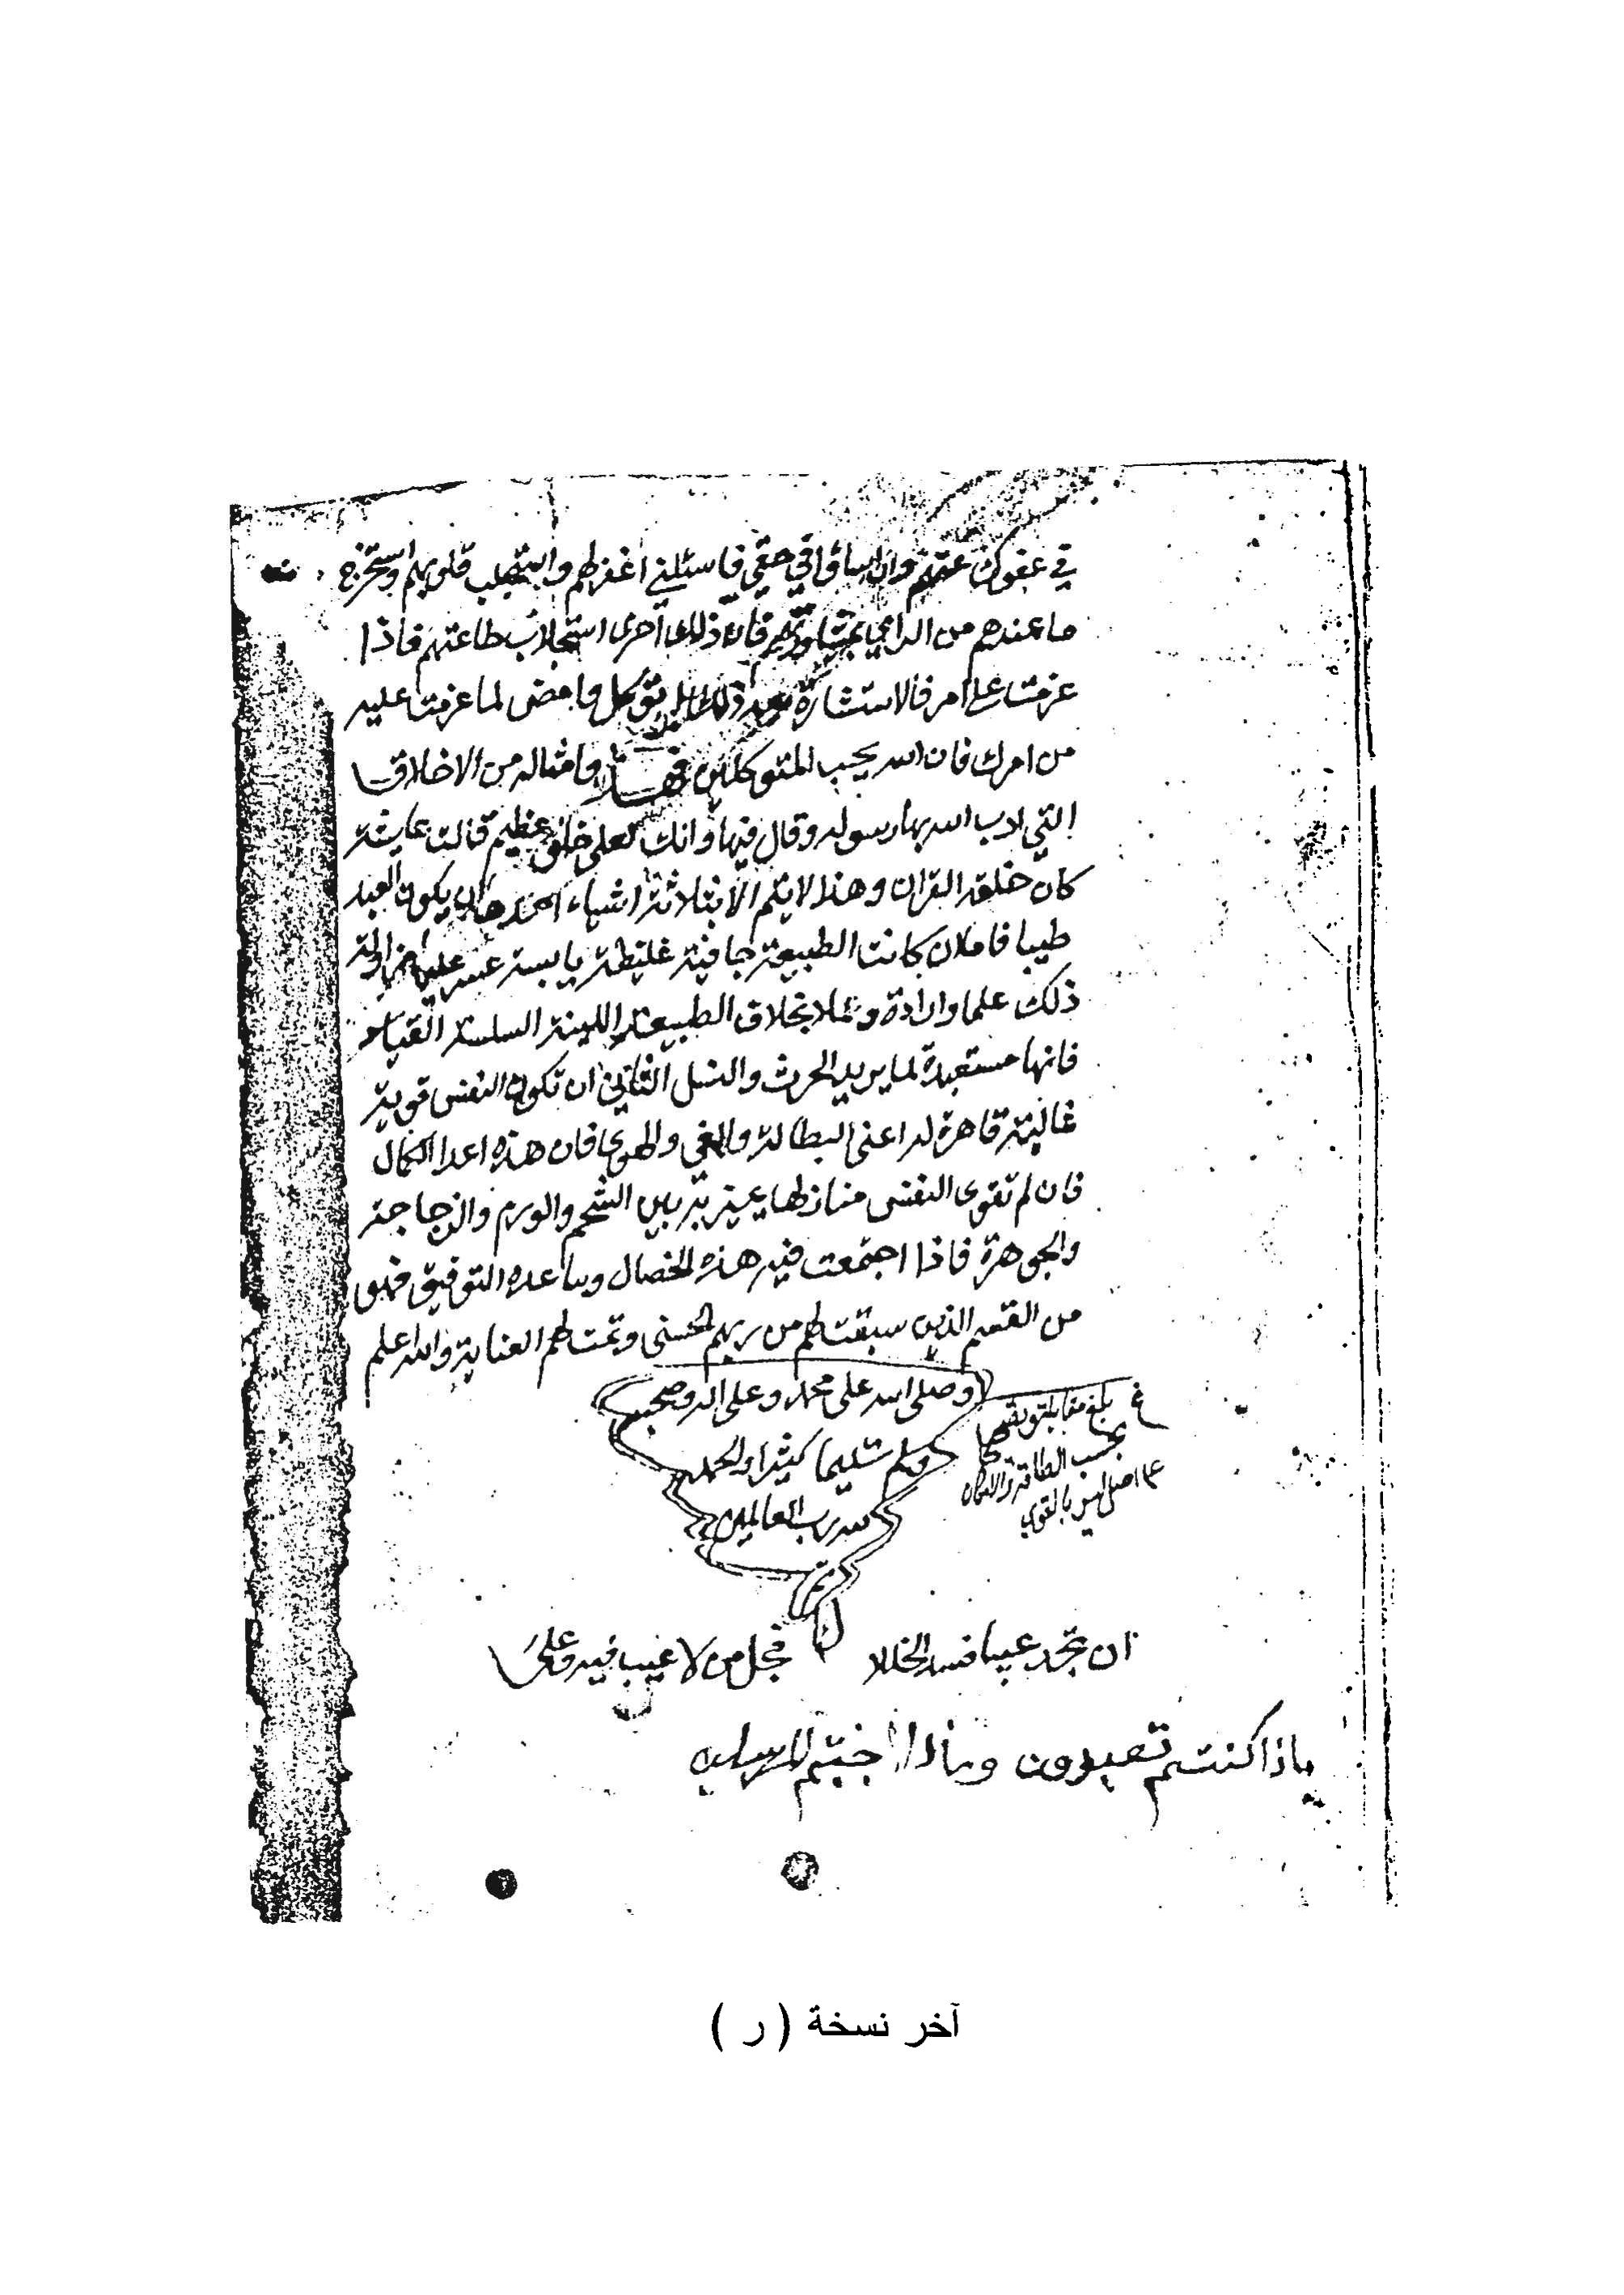 في عفوك عنهم وان اساؤا في حقي فاسئلني اغفر لهم واستجلب قلوبهم واستخرج
ما عندهم من الراي بمشاورتهم فان ذلك احرى استجلاب طاعتهم فاذا
عزمت على امر فلا استشارة بعد ذلك بل توكل وامض لما عزمت عليه
من امرك فان الله يحب المتوكلين فهذا وامثاله من الاخلاق
التي ادب الله بها رسوله وقال فيها وانك لعلى خلق عظيم قالت عايشة
كان خلقه القران وهذا لا يتم الا بثلاثة اشياء احدها ان يكون العبد
طيبا فاما ان كانت الطبيعة جافية غليظة يابسة عسر عليها مزاولة
ذلك علما وارادة وعملا بخلاف الطبيعة اللينة السلسة القياد
فانها مستعدة لما يريد الحرث والنسل الثاني ان تكون النفس قوية
غالبة قاهرة لدراعي البطالة والغي والهوى فان هذه اعدا الكمال
فان لم تقوى النفس منازلها يميز به بين الشحم والورم والزجاجة
والجوهرة فاذا اجتمعت فيه هذه الخصال وساعده التوفيق فهو
من القسم الذين سبقت لهم من ربهم الحسنى وتمت لهم العناية والله اعلم
وصلى الله على محمد وعلى اله وصحبه
وسلم تسليما كثيرا والحمد
لله رب العالمين
تم
بلغ مقابلة
بحسب الطاقة والامكان
على اصل ليس بالقوي
ان تجد عيبا فسد الخللا فجل من لا عيب فيه وعلا
ماذا كنتم تعبدون وماذا اجبتم المرسلين
آخر نسخة ( ر )